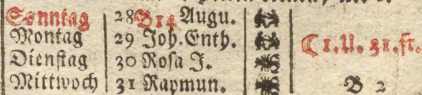 Sonntag 28 B14 Augu.
Montag 29 Joh. Enth. ☾ 1. U. 31. fr.
Dienstag 30 Rosa J.
Mittwoch 31 Raymun. B 2